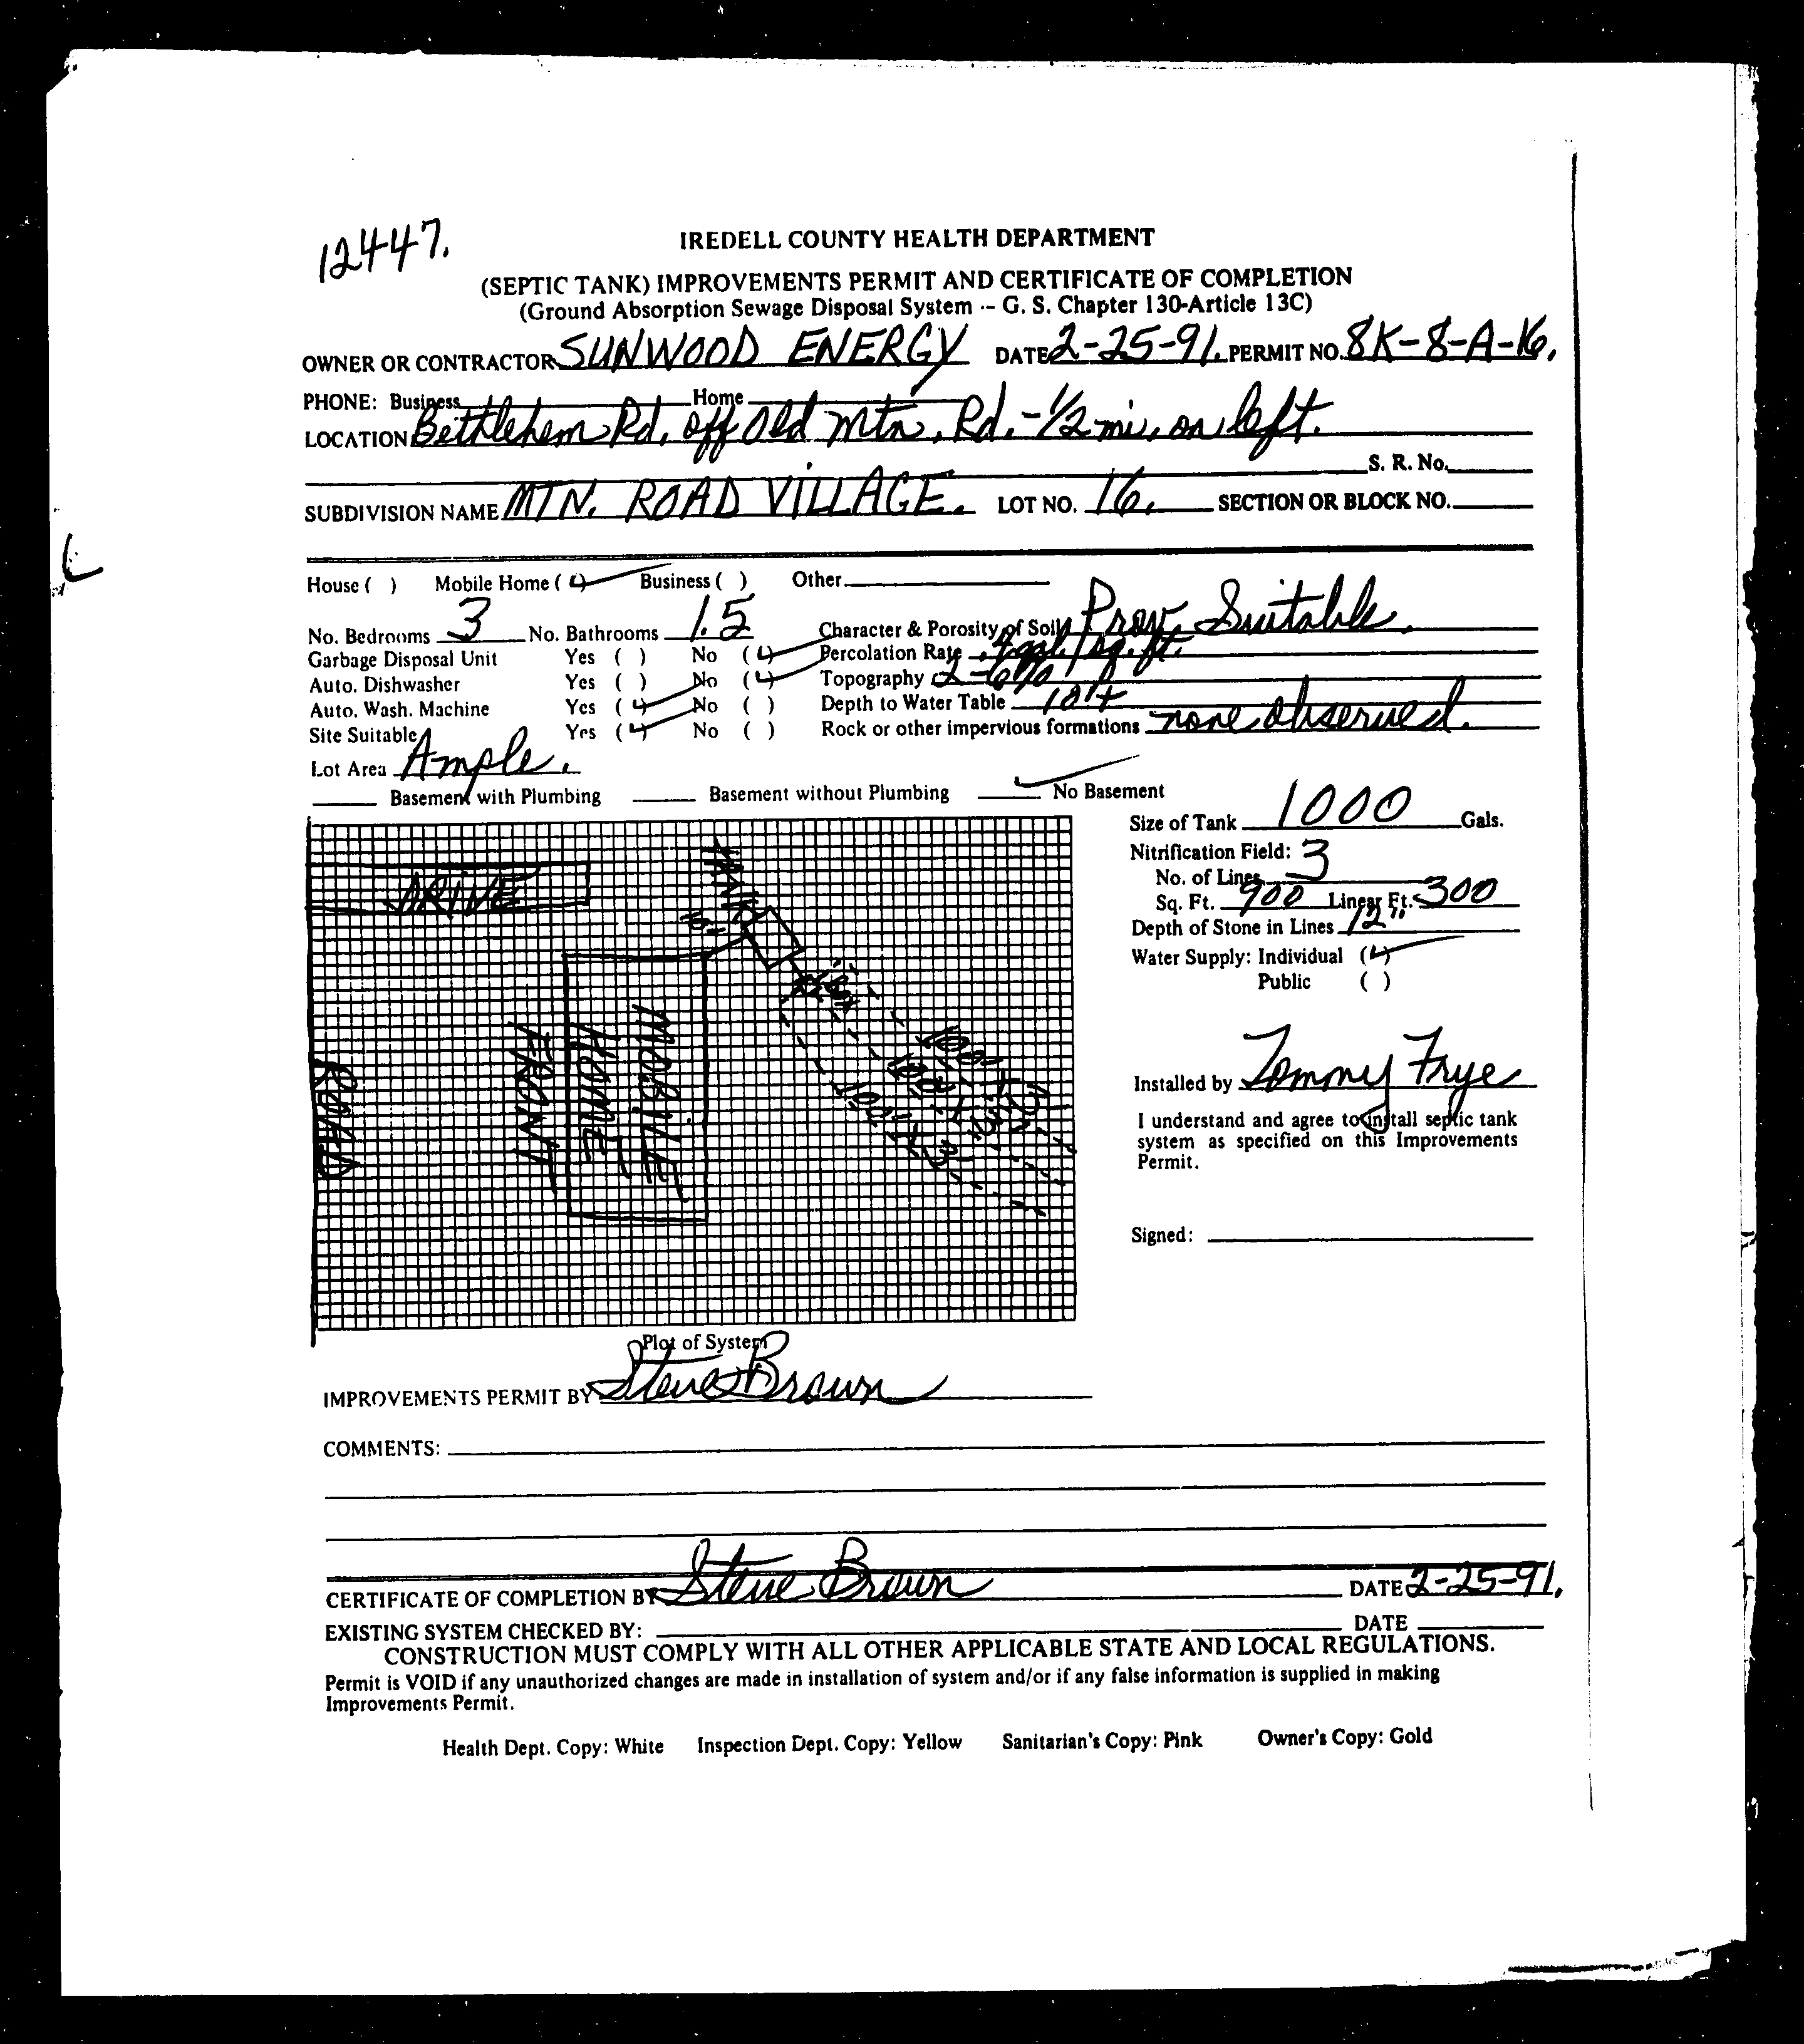 12447.
IREDELL COUNTY HEALTH DEPARTMENT
(SEPTIC TANK) IMPROVEMENTS PERMIT AND CERTIFICATE OF COMPLETION
(Ground Absorption Sewage Disposal System -- G. S. Chapter 130-Article 13C)
OWNER OR CONTRACTOR SUNWOOD ENERGY DATE 2-25-91. PERMIT NO. 8K-8-A-16.
PHONE: Business Home
LOCATION Bethlehem Rd. off Old Mtn. Rd. - 1/2 mi. on left.
S. R. No.
SUBDIVISION NAME MTN. ROAD VILLAGE. LOT NO. 16. SECTION OR BLOCK NO.
House ( ) Mobile Home (✓) Business ( ) Other
No. Bedrooms 3 No. Bathrooms 1.5 Character & Porosity of Soil Prov. Suitable.
Garbage Disposal Unit Yes ( ) No (✓) Percolation Rate .4 gal/sq.ft.
Auto. Dishwasher Yes ( ) No (✓) Topography 2-6%
Auto. Wash. Machine Yes (✓) No ( ) Depth to Water Table 10'+
Site Suitable Yes (✓) No ( ) Rock or other impervious formations none observed.
Lot Area Ample.
Basement with Plumbing Basement without Plumbing ✓ No Basement
Size of Tank 1000 Gals.
Nitrification Field:
No. of Lines 3
Sq. Ft. 900 Linear Ft. 300
Depth of Stone in Lines 12"
Water Supply: Individual (✓)
Public ( )
DRIVE
TANK
ROAD
FRONT
MOBILE
HOME
Installed by Tommy Frye
I understand and agree to install septic tank
system as specified on this Improvements
Permit.
Signed:
Plot of System
IMPROVEMENTS PERMIT BY Steve Brown
COMMENTS:
CERTIFICATE OF COMPLETION BY Steve Brown DATE 2-25-91.
EXISTING SYSTEM CHECKED BY: DATE
CONSTRUCTION MUST COMPLY WITH ALL OTHER APPLICABLE STATE AND LOCAL REGULATIONS.
Permit is VOID if any unauthorized changes are made in installation of system and/or if any false information is supplied in making
Improvements Permit.
Health Dept. Copy: White Inspection Dept. Copy: Yellow Sanitarian's Copy: Pink Owner's Copy: Gold